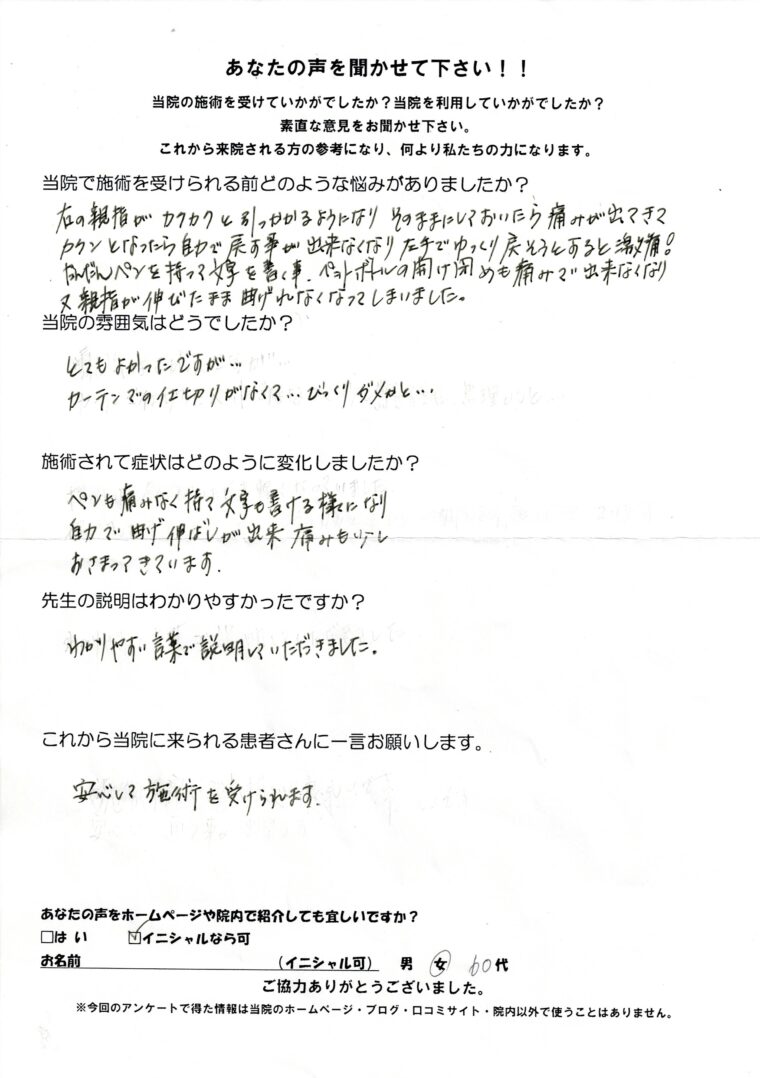 あなたの声を聞かせて下さい！！
当院の施術を受けていかがでしたか？当院を利用していかがでしたか？
素直な意見をお聞かせ下さい。
これから来院される方の参考になり、何より私たちの力になります。
当院で施術を受けられる前どのような悩みがありましたか？
右の親指がカクカクと引っかかるようになりそのままにしておいたら痛みが出てきて
カクンとなったら自力で戻す事が出来なくなり左手でゆっくり戻そうとすると激痛!
だんだんペンを持って文字を書く事、ペットボトルの開け閉めも痛みで出来なくなり
又親指が伸びたまま曲げれなくなってしまいました。
当院の雰囲気はどうでしたか？
とてもよかったですが…
カーテンでの仕切りがなくて…びっくりダメかと…
施術されて症状はどのように変化しましたか？
ペンも痛みなく持て文字も書ける様になり
自力で曲げ伸ばしが出来痛みも少し
おさまってきています.
先生の説明はわかりやすかったですか？
わかりやすい言葉で説明していただきました。
これから当院に来られる患者さんに一言お願いします。
安心して施術を受けられます.
あなたの声をホームページや院内で紹介しても宜しいですか？
□はい ☑イニシャルなら可
お名前 （イニシャル可） 男 女 60代
ご協力ありがとうございました。
※今回のアンケートで得た情報は当院のホームページ・ブログ・口コミサイト・院内以外で使うことはありません。